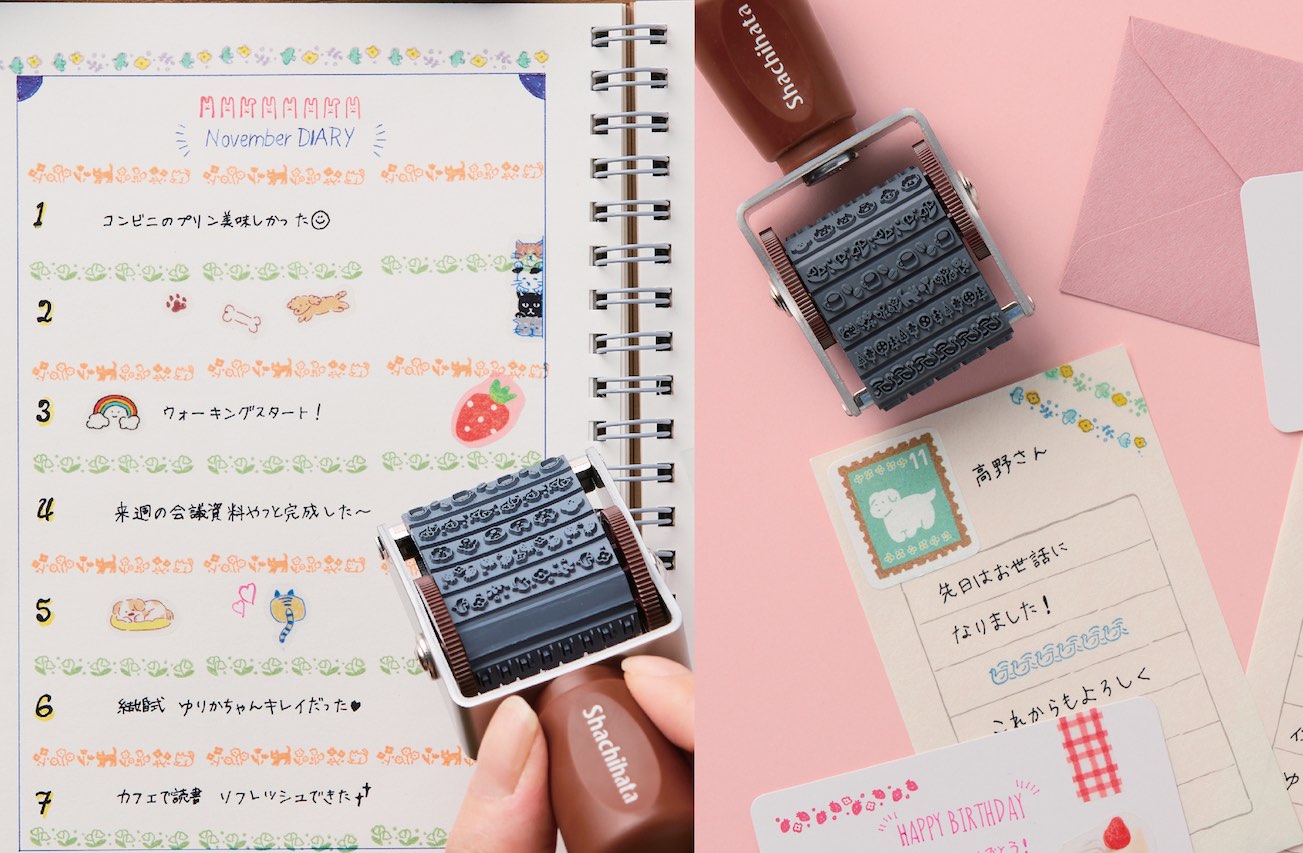 November DIARY
1 コンビニのプリン美味しかった
2
3 ウォーキングスタート!
4 来週の会議資料やっと完成した〜
5
6 結婚式 ゆりかちゃんキレイだった♥
7 カフェで読書 リフレッシュできた
Shachihata
Shachihata
11
高野さん
先日はお世話に
なりました!
これからもよろしく
HAPPY BIRTHDAY